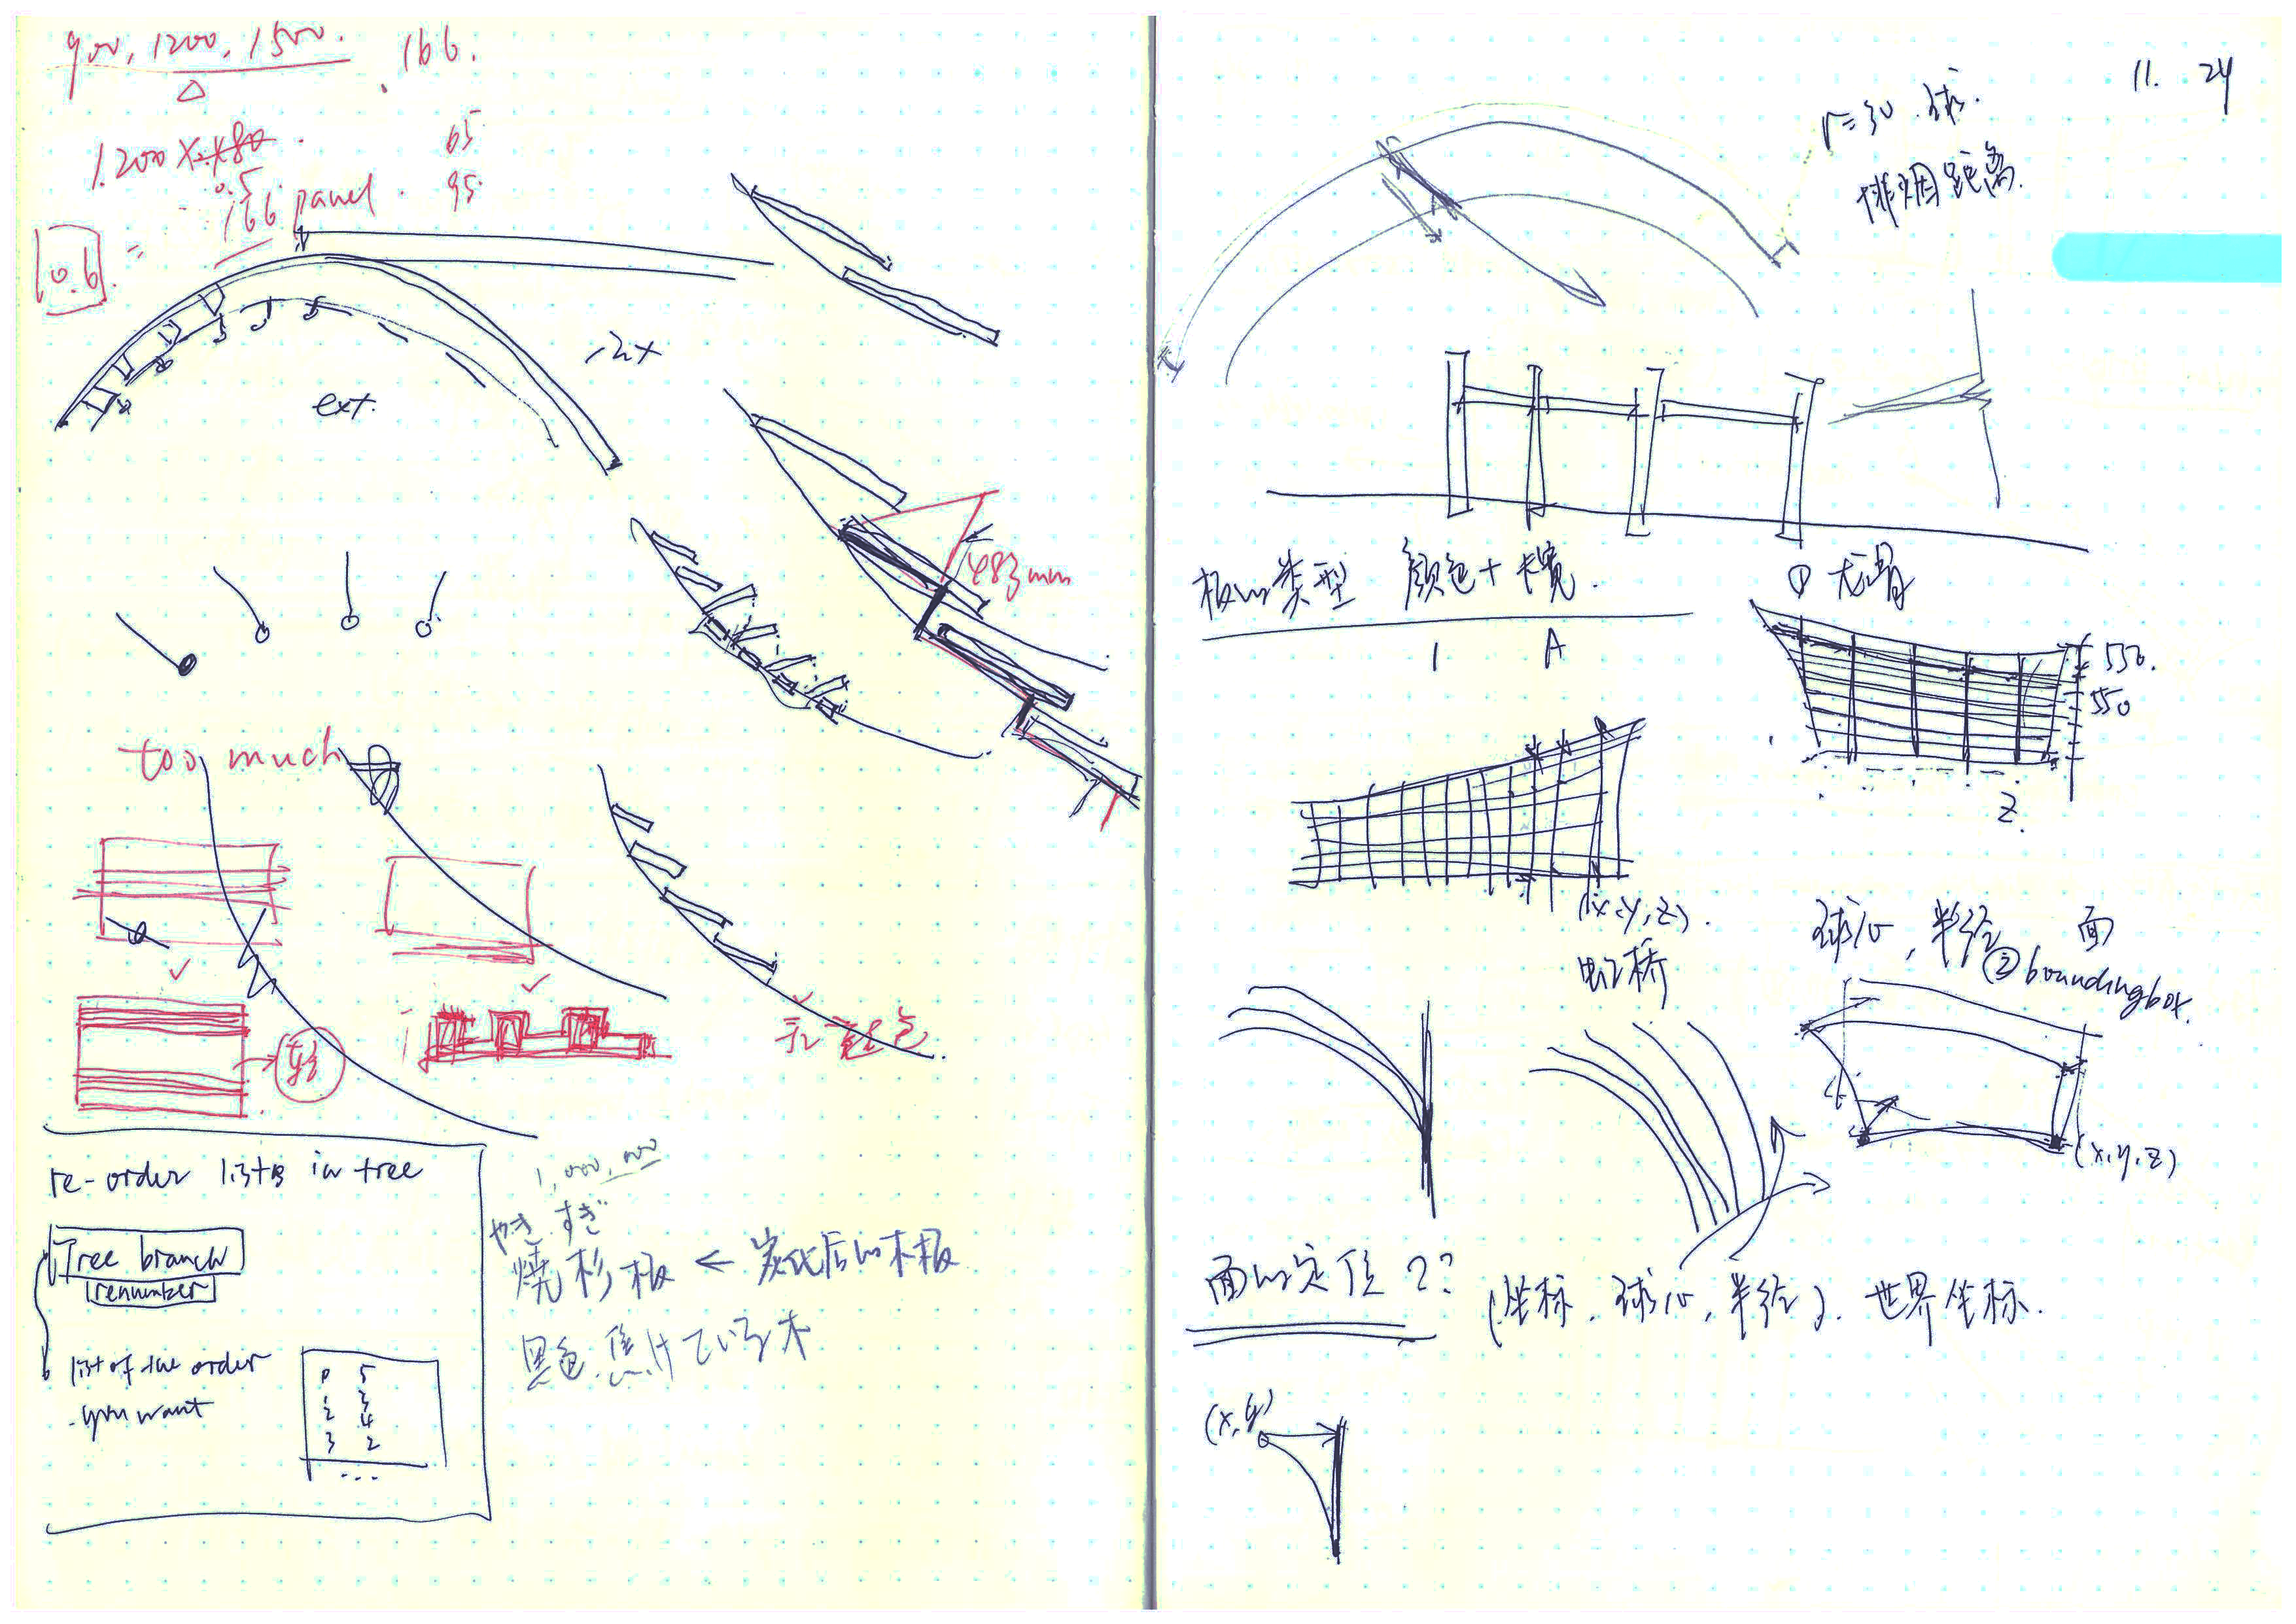 900, 1200, 1500. 166.
1.200 x
0.5
166 panel.
65
95
0.6
=
ext.
483mm
too much
re-order lists in tree
Tree branch
renumber
list of the order
you want
0 5
1 3
2 4
3 2
...
1,000,000
やき すぎ
焼杉板 ← 炭化后的木板
黒色.焦げている木
11. 24
r=30.球.
排烟距离.
板的类型 颜色+长宽.
1 A
① 龙骨
550.
550
z.
(x,y,z).
虹桥
球心,半径 面
② boundingbox.
(x,y,z)
面的定位??
(坐标.球心,半径).世界坐标.
(x,y)